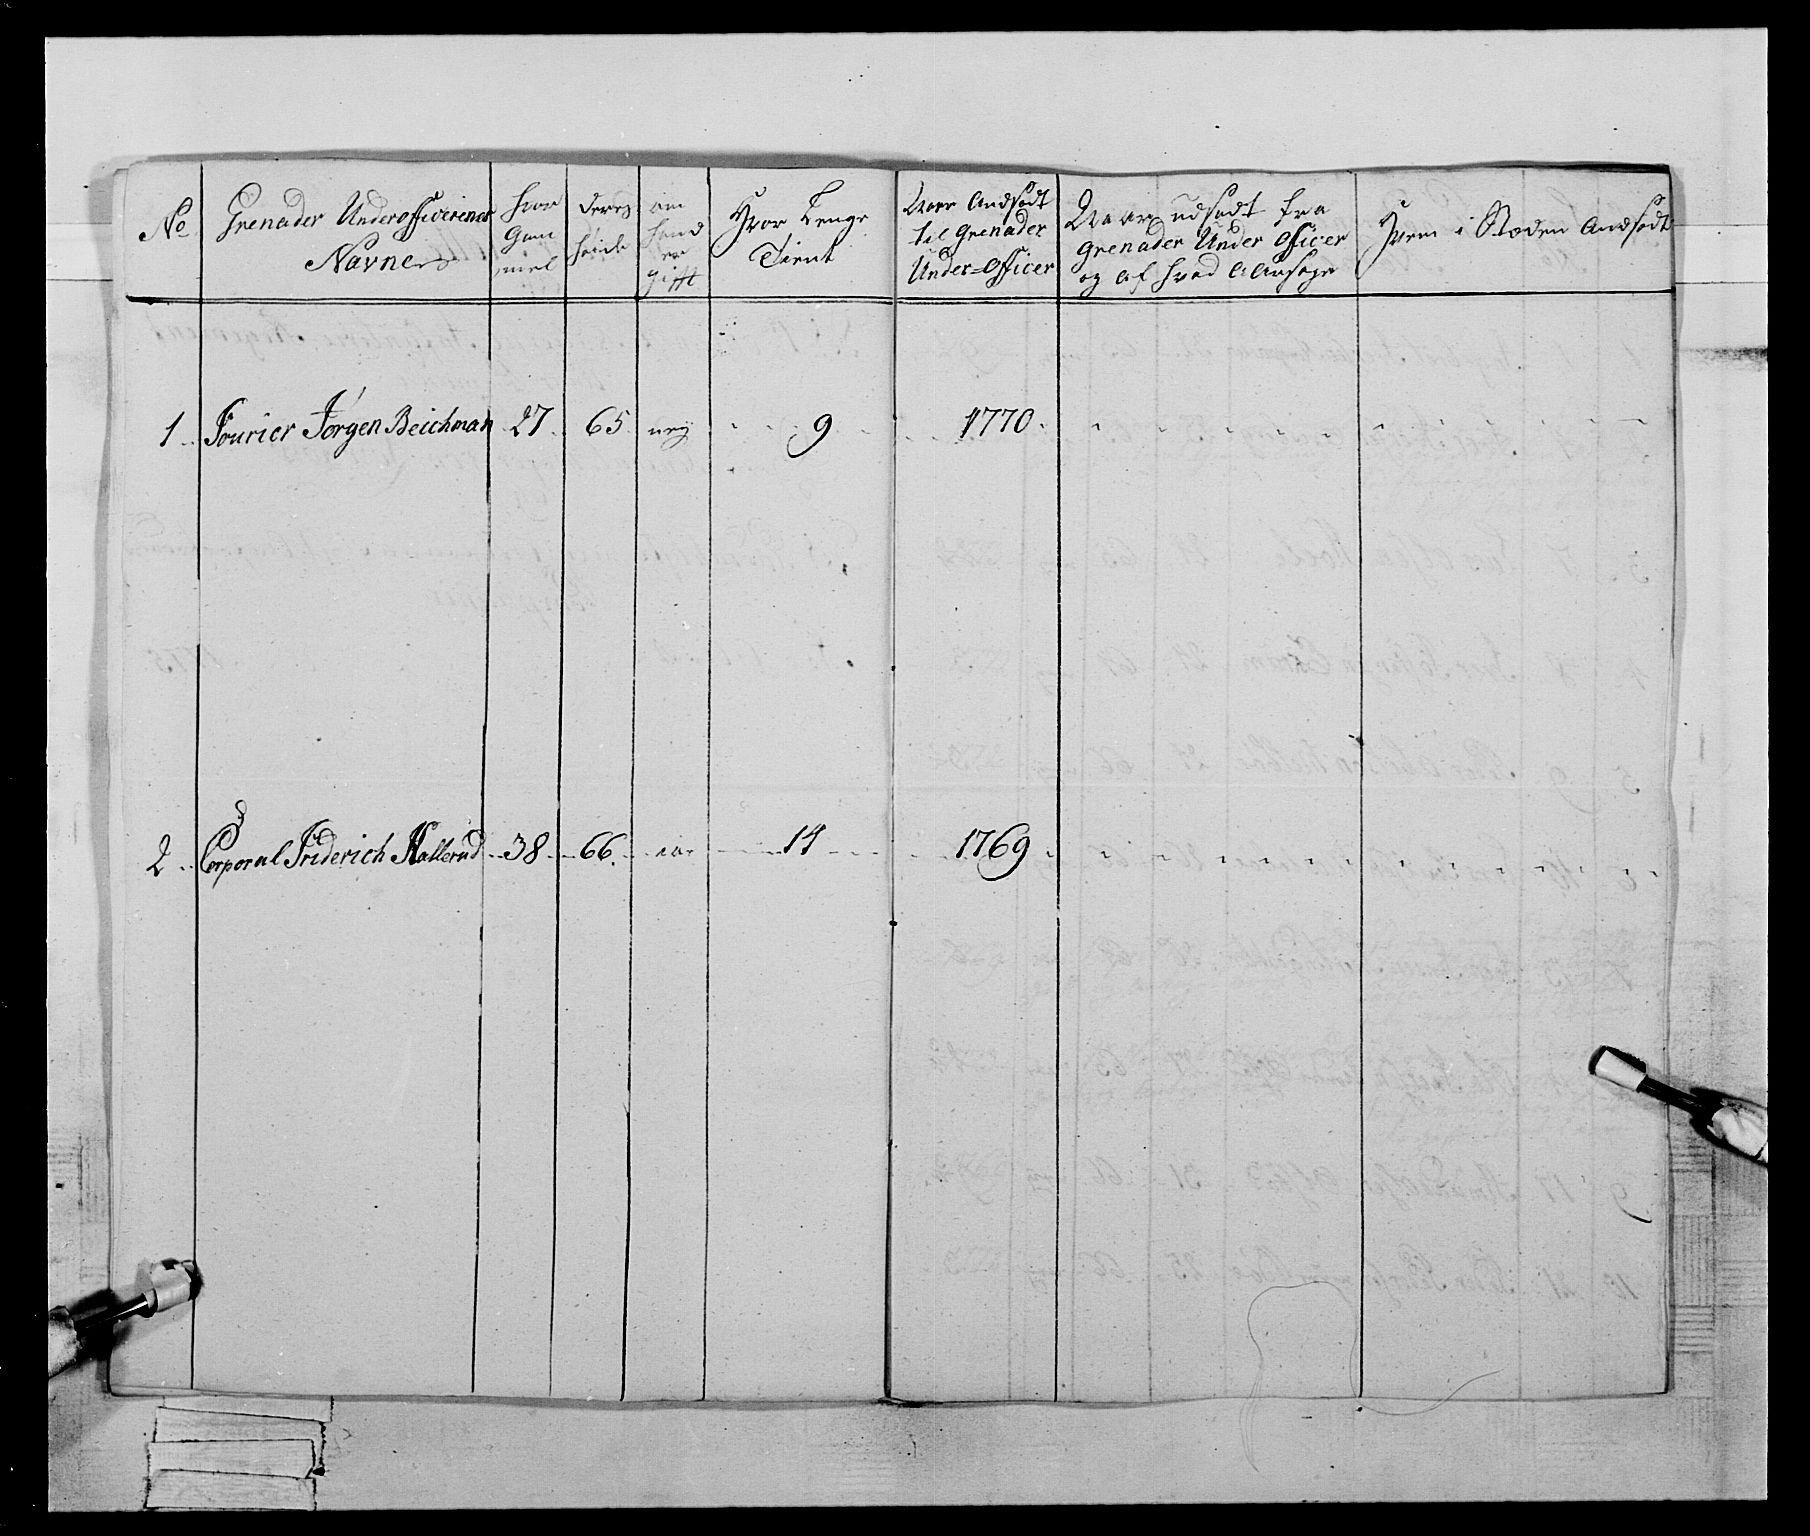 No
Grenader Underofficerernes
Navne
hvor
Gam
mel
Deres
Høide
om
hand
er
gifft
Hvor Lenge
Tient
Naar Andsadt
til Grenader
Under=Officer
Naar udsadt fra
Grenader Under Officer
og af hvad Aarsage
Hvem i Stæden Andsadt
1 Fourier Jørgen Beichman 27 65 ney 9 1770
2 Corporal Friderich Hallerud 38 66 14 1769